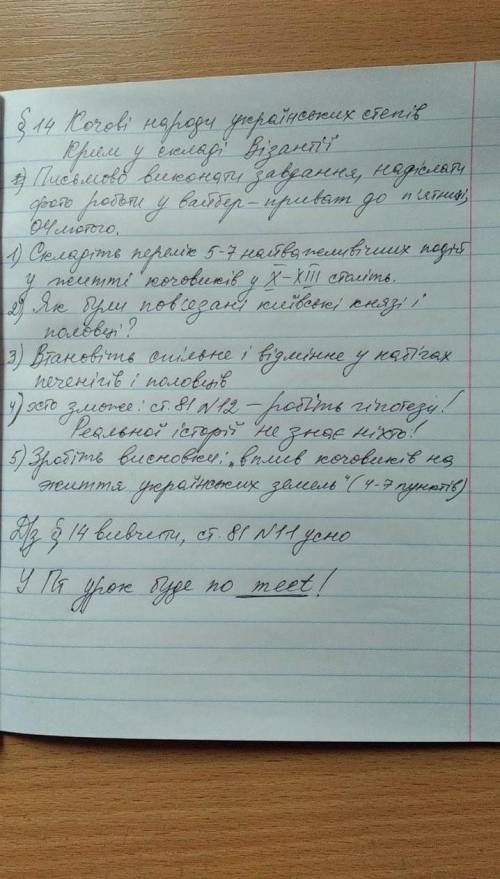 § 14 Кочові народи українських степів
Крим у складі Візантії
Письмово виконати завдання, надіслати
фото роботи у вайбер – приват до п'ятниці,
04 лютого.
1) Складіть перелік 5-7 найважливіших подій
у житті кочовиків у X–XIII століть.
2) Як були пов'язані київські князі і
половці?
3) Встановіть спільне і відмінне у набігах
печенігів і половців
4) хто зможе: ст. 81 №12 – робіть гіпотезу!
Реальної історії не знає ніхто!
5) Зробіть висновки: „вплив кочовиків на
життя українських земель" (4-7 пунктів)
Д/з § 14 вивчити, ст. 81 №11 усно
У Пт урок буде по meet!